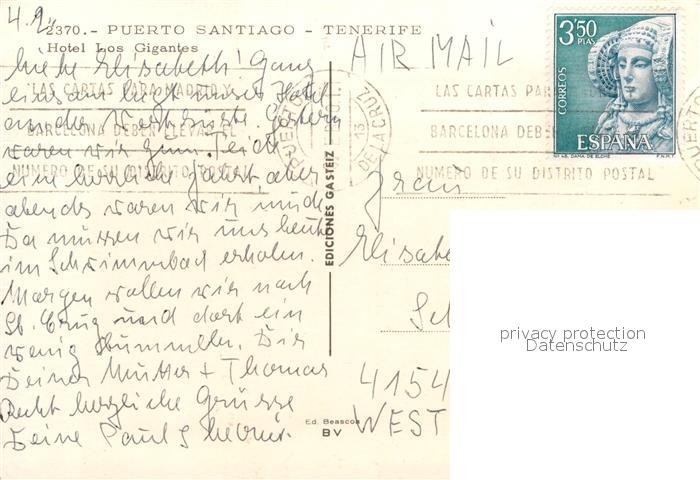 4.2.
2370.- PUERTO SANTIAGO - TENERIFE
Hotel Los Gigantes
AIR MAIL
3'50
PTAS
CORREOS
ESPAÑA
DAMA DE ELCHE F.N.M.T.
LAS CARTAS PARA MADRID Y
BARCELONA DEBEN LLEVAR EL
NUMERO DE SU DISTRITO POSTAL
LAS CARTAS PAR
BARCELONA DEBE
NUMERO DE SU DISTRITO POSTAL
PUERTO
DE LA CRUZ
PUERTO
Liebe Elisabeth! Ganz
einsam liegt unser Hotel
an der Westküste. Gestern
waren wir zum Teide
eine herrliche Fahrt, aber
abends waren wir müde
Da müssen wir uns heute
im Schwimmbad erholen.
Morgen wollen wir nach
St. Cruz und dort ein
wenig bummeln. Dir
Deiner Mutter + Thomas
Recht herzliche Grüsse
Deine Paul
EDICIONES GASTEIZ
Ed. Beascoa
BV
Frau
Elisabe
Sch
4154
WEST
privacy protection
Datenschutz